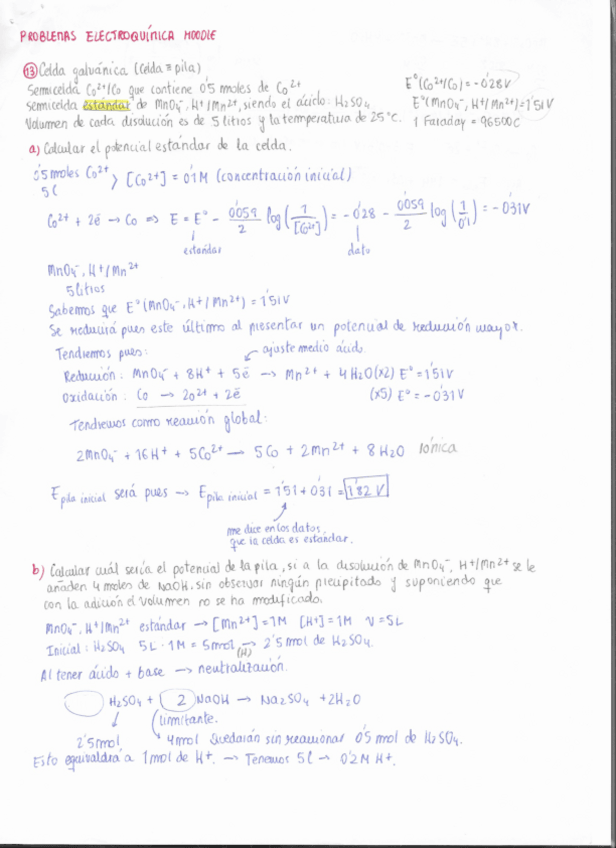 PROBLEMAS ELECTROQUÍMICA MOODLE
13 Celda galvánica (Celda ≡ pila)
Semicelda Co²⁺/Co que contiene 0'5 moles de Co²⁺ E°(Co²⁺/Co) = -0'28V
Semicelda estándar de MnO₄⁻, H⁺/Mn²⁺, siendo el ácido: H₂SO₄ E°(MnO₄⁻, H⁺/Mn²⁺) = 1'51V
Volumen de cada disolución es de 5 litros y la temperatura de 25°C. 1 Faraday = 96500C
a) Calcular el potencial estándar de la celda.
0'5 moles Co²⁺
5L > [Co²⁺] = 0'1M (concentración inicial)
Co²⁺ + 2e⁻ → Co ⇒ E = E° - 0'059/2 log(1/[Co²⁺]) = -0'28 - 0'059/2 log(1/0'1) = -0'31V
estándar dato
MnO₄⁻, H⁺/Mn²⁺
5 litros
Sabemos que E°(MnO₄⁻, H⁺/Mn²⁺) = 1'51V
Se reducirá pues este último al presentar un potencial de reducción mayor.
Tendremos pues: ajuste medio ácido
Reducción: MnO₄⁻ + 8H⁺ + 5e⁻ → Mn²⁺ + 4H₂O (x2) E° = 1'51V
Oxidación: Co → 2o²⁺ + 2e⁻ (x5) E° = -0'31V
Tendremos como reacción global:
2MnO₄⁻ + 16H⁺ + 5Co²⁺ → 5Co + 2Mn²⁺ + 8H₂O Iónica
E pila inicial será pues → E pila inicial = 1'51 + 0'31 = 1'82 V
me dice en los datos
que la celda es estándar.
b) Calcular cuál sería el potencial de la pila, si a la disolución de MnO₄⁻, H⁺/Mn²⁺ se le
añaden 4 moles de NaOH, sin observar ningún precipitado y suponiendo que
con la adición el volumen no se ha modificado.
MnO₄⁻, H⁺/Mn²⁺ estándar → [Mn²⁺] = 1M [H⁺] = 1M V = 5L
Inicial: H₂SO₄ 5L · 1M = 5mol (H) → 2'5 mol de H₂SO₄.
Al tener ácido + base → neutralización.
H₂SO₄ + 2 NaOH → Na₂SO₄ + 2H₂O
limitante.
2'5mol 4mol Quedarán sin reaccionar 0'5 mol de H₂SO₄.
Esto equivaldrá a 1mol de H⁺. → Tenemos 5L → 0'2M H⁺.